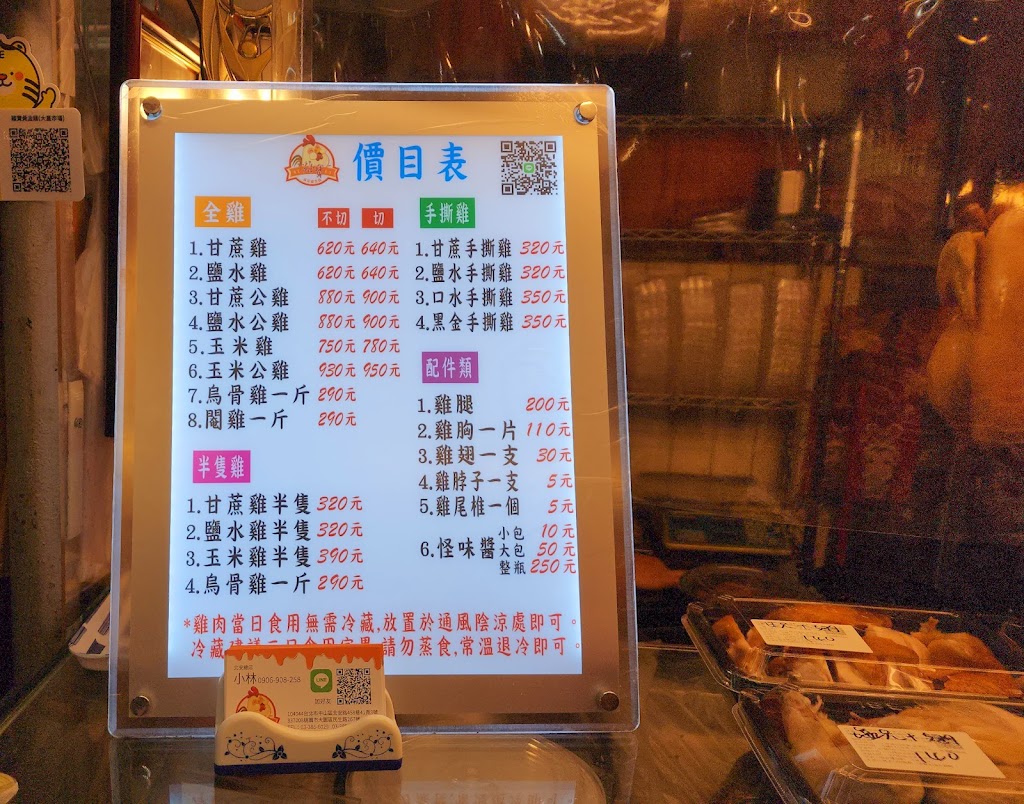 價目表
全雞 不切 切
1.甘蔗雞 620元 640元
2.鹽水雞 620元 640元
3.甘蔗公雞 880元 900元
4.鹽水公雞 880元 900元
5.玉米雞 750元 780元
6.玉米公雞 930元 950元
7.烏骨雞一斤 290元
8.閹雞一斤 290元
半隻雞
1.甘蔗雞半隻 320元
2.鹽水雞半隻 320元
3.玉米雞半隻 390元
4.烏骨雞一斤 290元
手撕雞
1.甘蔗手撕雞 320元
2.鹽水手撕雞 320元
3.口水手撕雞 350元
4.黑金手撕雞 350元
配件類
1.雞腿 200元
2.雞胸一片 110元
3.雞翅一支 30元
4.雞脖子一支 5元
5.雞尾椎一個 5元
6.怪味醬 小包 10元
大包 50元
整瓶 250元
*雞肉當日食用無需冷藏,放置於通風陰涼處即可。
冷藏建議 請勿蒸食,常溫退冷即可。
小林 0906-908-258
LINE
加好友
140
140